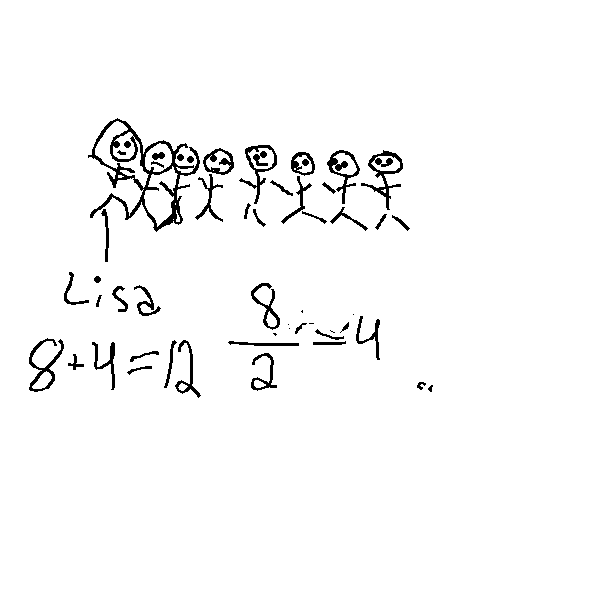 Lisa
8+4=12
8/2=4